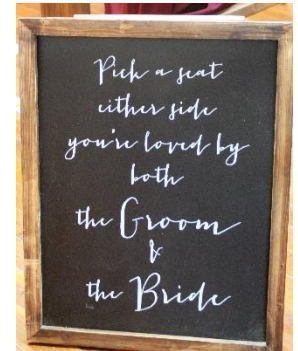 Pick a seat
either side
you're loved by
both
the Groom
&
the Bride